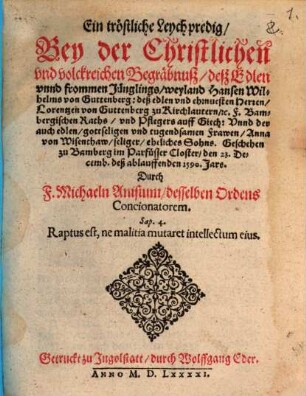 Ein tröstliche Leych predig/
Bey der Christlichen
vnd volckreichen Begräbnuß/ deß Edlen
vnnd frommen Jünglings/ weyland Hansen Wil-
helms von Guttenberg: deß edlen vnd ehrnuesten Herren/
Lorentzen von Guttenberg zu Kirchlautern/ ꝛc. F. Bam-
bergischen Raths/ vnd Pflegers auff Giech: Vnnd der
auch edlen/ gottseligen vnd tugendsamen Frawen/ Anna
von Wisenthaw/ seliger/ eheliches Sohns. Geschehen
zu Bamberg im Parfüsser Closter/ den 23. De-
cemb. deß ablauffenden 1590. Jars.
Durch
F. Michaeln Anisium/ desselben Ordens
Concionatorem.
Sap. 4.
Raptus est, ne malitia mutaret intellectum eius.
Getruckt zu Ingolstatt/ durch Wolffgang Eder.
Anno M. D. LXXXXI.